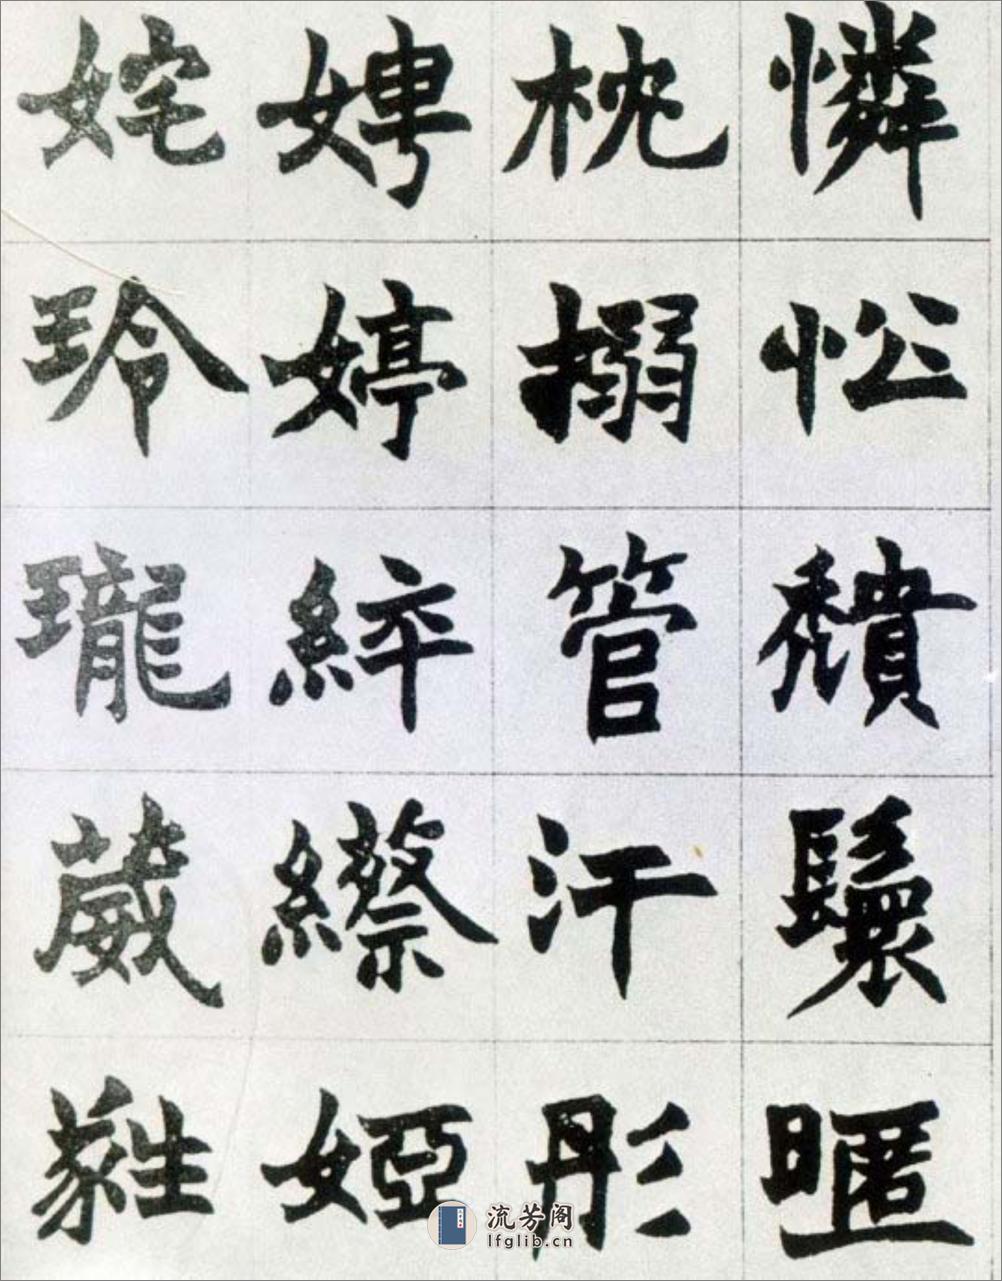 憐忪穨鬟暱
枕搦管汗彤
娉婷綷縩婭
姹玲瓏葳甤
流芳阁
lfglib.cn